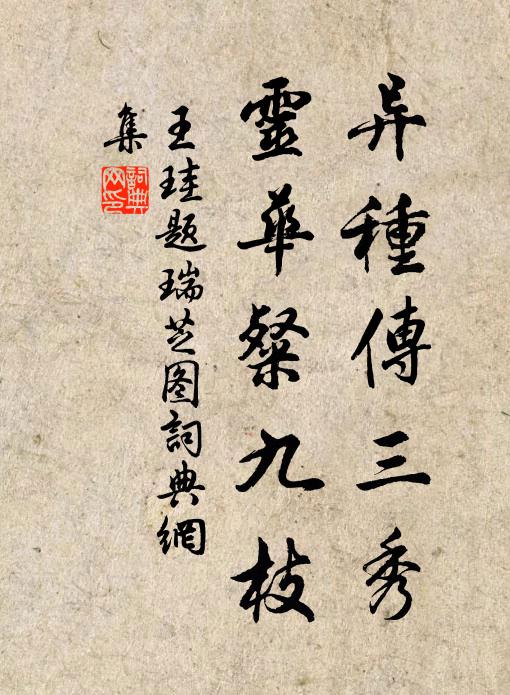 异種傳三秀
靈華粲九枝
王珪題瑞芝图詞典網
集
詞典
网印